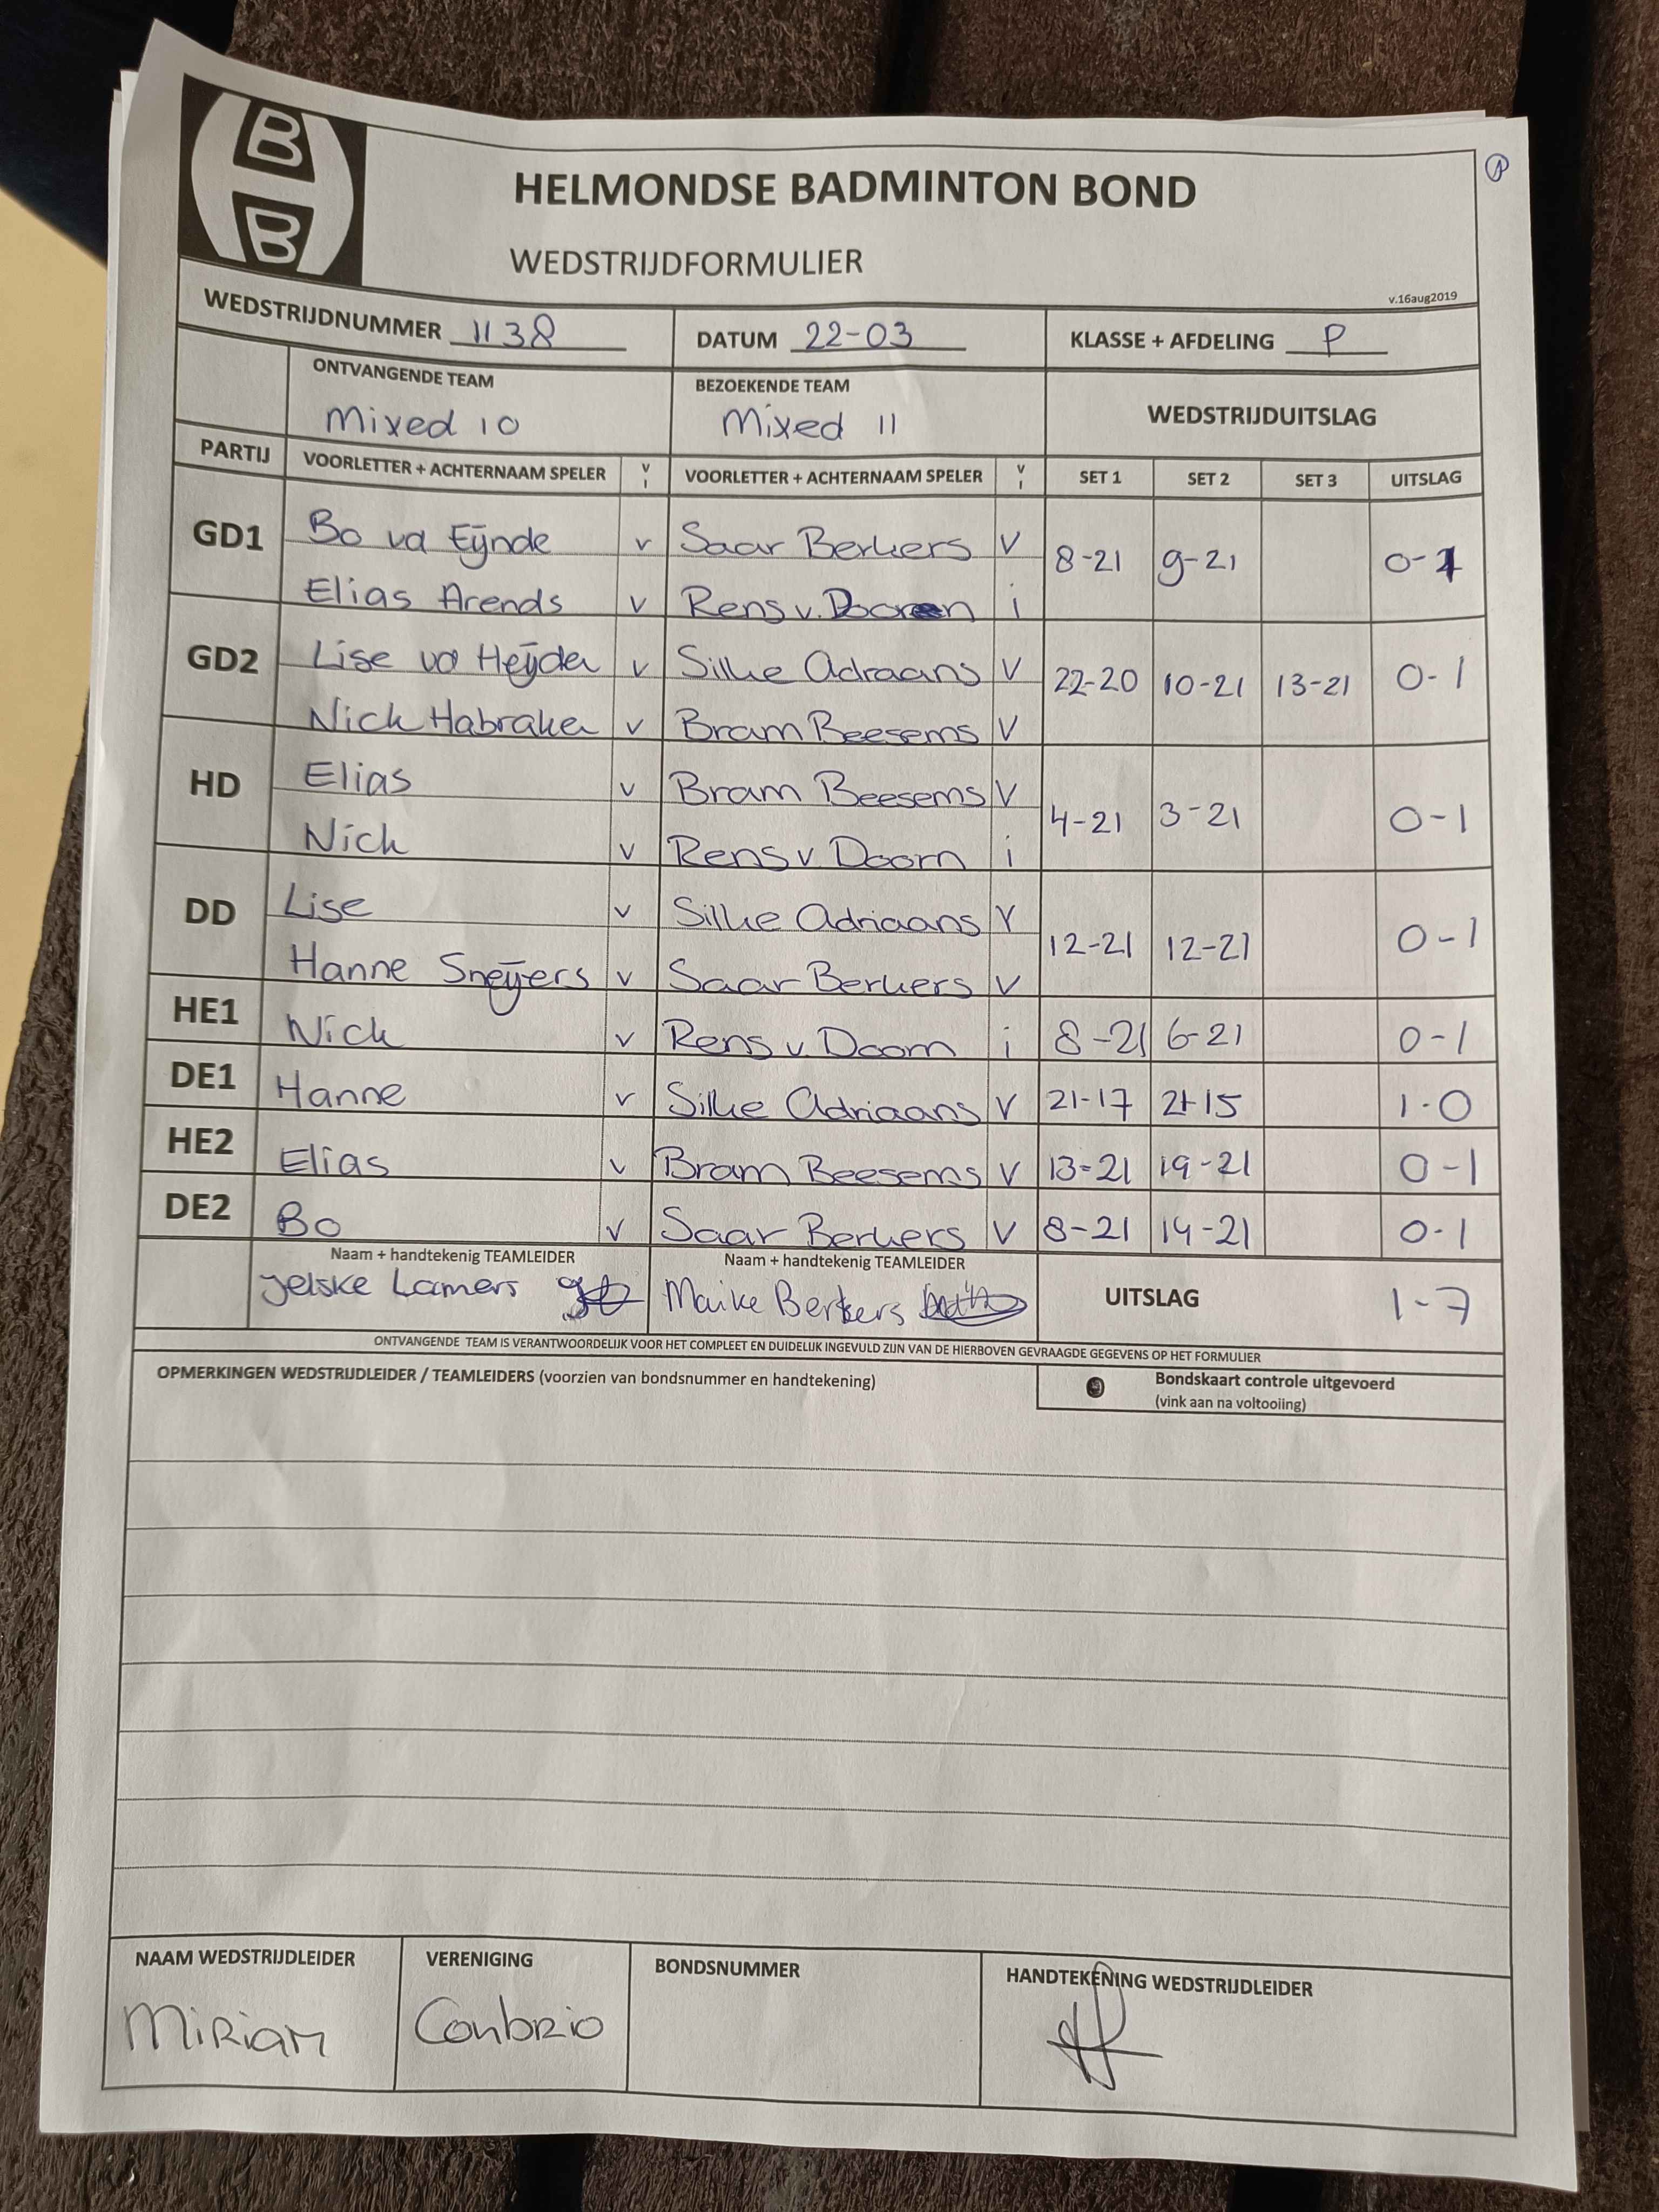 HELMONDSE BADMINTON BOND
WEDSTRIJDFORMULIER
v.16aug2019
WEDSTRIJDNUMMER 1138 DATUM 22-03 KLASSE + AFDELING P
ONTVANGENDE TEAM BEZOEKENDE TEAM WEDSTRIJDUITSLAG
Mixed 10 Mixed 11
PARTIJ VOORLETTER + ACHTERNAAM SPELER V I VOORLETTER + ACHTERNAAM SPELER V I SET 1 SET 2 SET 3 UITSLAG
GD1 Bo vd Eijnde v Saar Berkers V 8-21 9-21 0-1
Elias Arends v Rens v. Dooren i
GD2 Lise vd Heijden v Silke Adraans V 22-20 10-21 13-21 0-1
Nick Habraken v Bram Beesems V
HD Elias v Bram Beesems V 4-21 3-21 0-1
Nick v Rens v Doorn i
DD Lise v Silke Adriaans V 12-21 12-21 0-1
Hanne Sneijers v Saar Berkers V
HE1 Nick v Rens v. Doorn i 8-21 6-21 0-1
DE1 Hanne v Silke Adriaans V 21-17 21-15 1-0
HE2 Elias v Bram Beesems V 13-21 19-21 0-1
DE2 Bo v Saar Berkers V 8-21 14-21 0-1
Naam + handtekenig TEAMLEIDER Naam + handtekenig TEAMLEIDER
Jelske Lamers Maike Berkers UITSLAG 1-7
ONTVANGENDE TEAM IS VERANTWOORDELIJK VOOR HET COMPLEET EN DUIDELIJK INGEVULD ZIJN VAN DE HIERBOVEN GEVRAAGDE GEGEVENS OP HET FORMULIER
OPMERKINGEN WEDSTRIJDLEIDER / TEAMLEIDERS (voorzien van bondsnummer en handtekening) Bondskaart controle uitgevoerd
(vink aan na voltooiing)
NAAM WEDSTRIJDLEIDER VERENIGING BONDSNUMMER HANDTEKENING WEDSTRIJDLEIDER
Miriam Conbrio